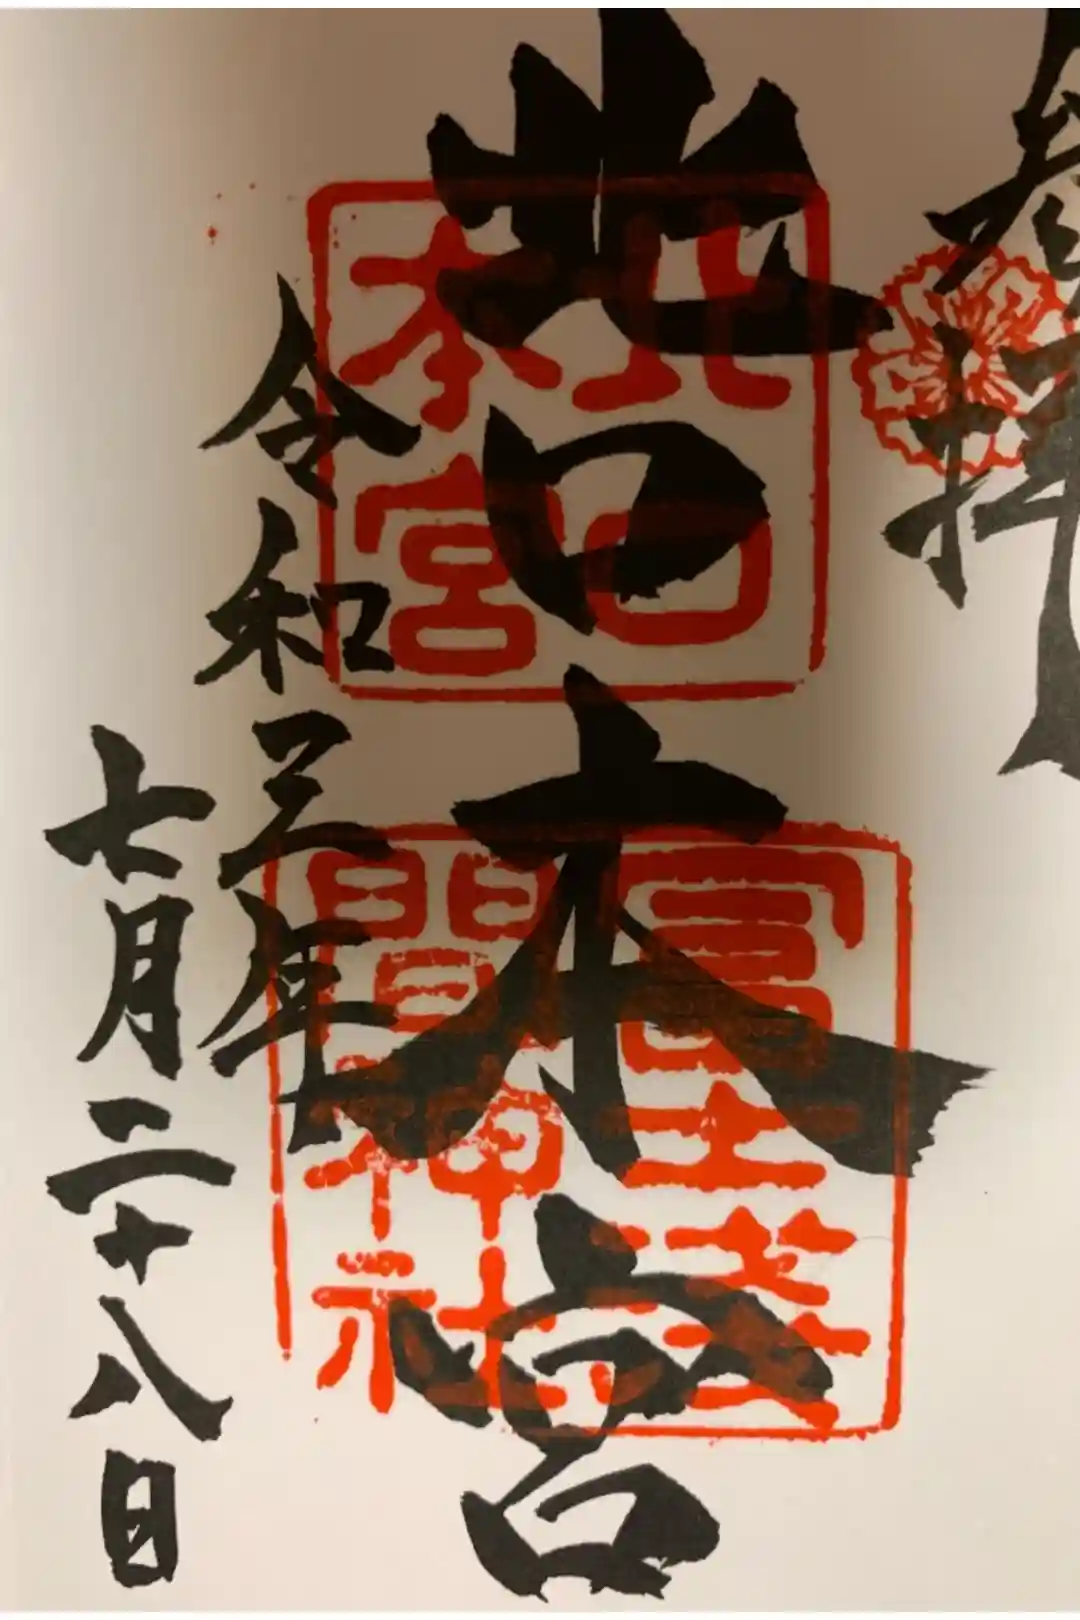 奉拝
北口本宮
北口
本宮
冨士浅
間神社
令和三年
七月二十八日